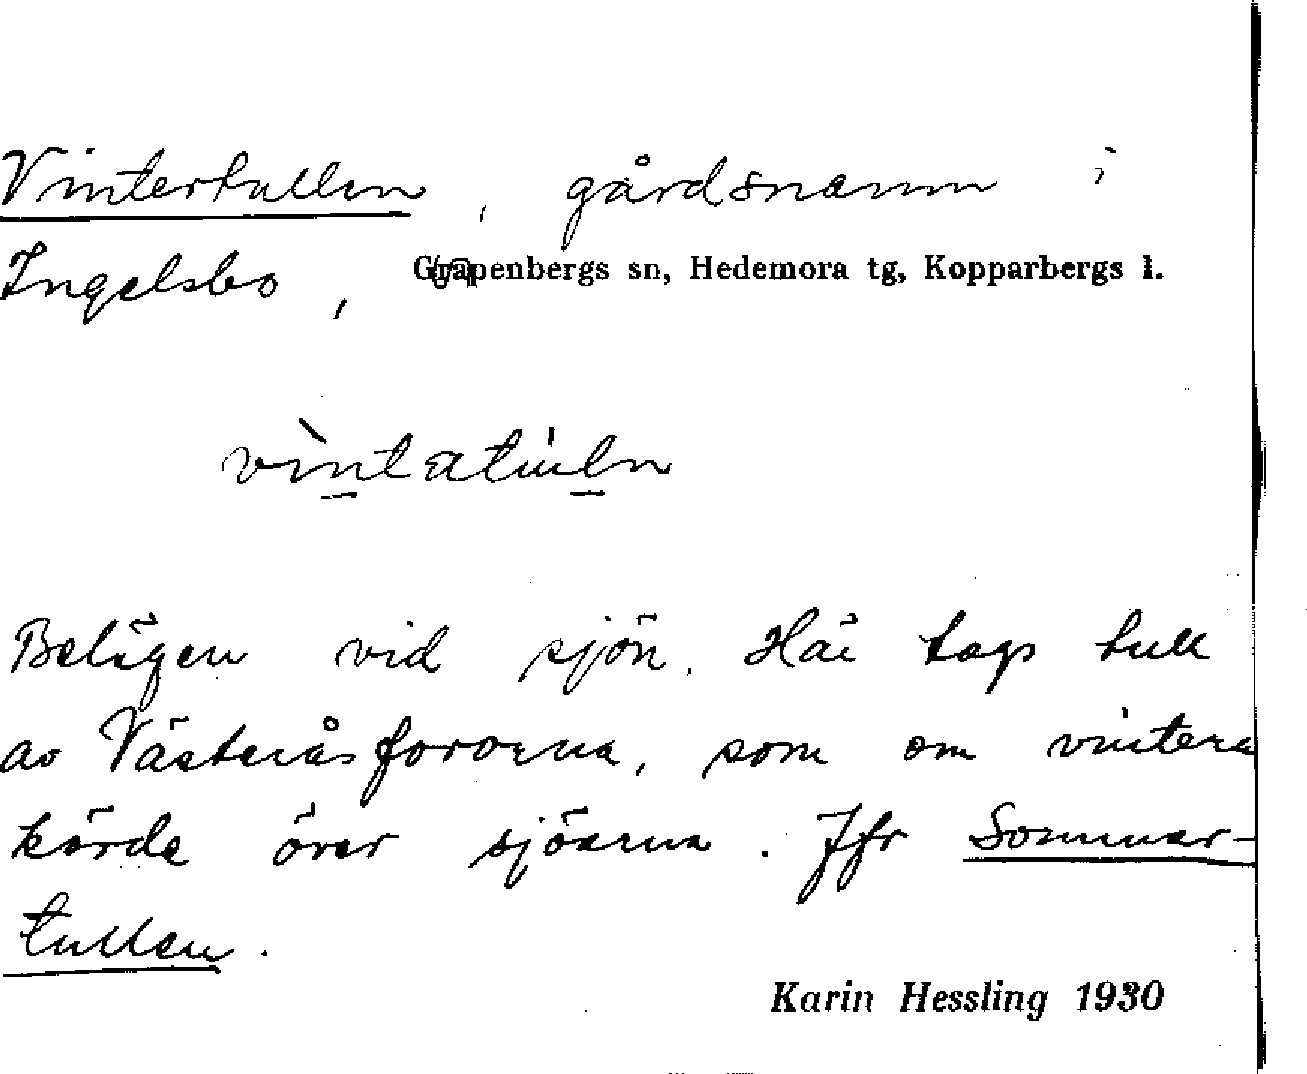 Vintertullen, gårdsnamn i
Ingelsbo, Garpenbergs sn, Hedemora tg, Kopparbergs l.
Belägen vid sjön. Här togs tull
av Västeråsfororna, som om vintern
körde över sjöarna. Jfr Sommar-
tullen.
Karin Hessling 1930